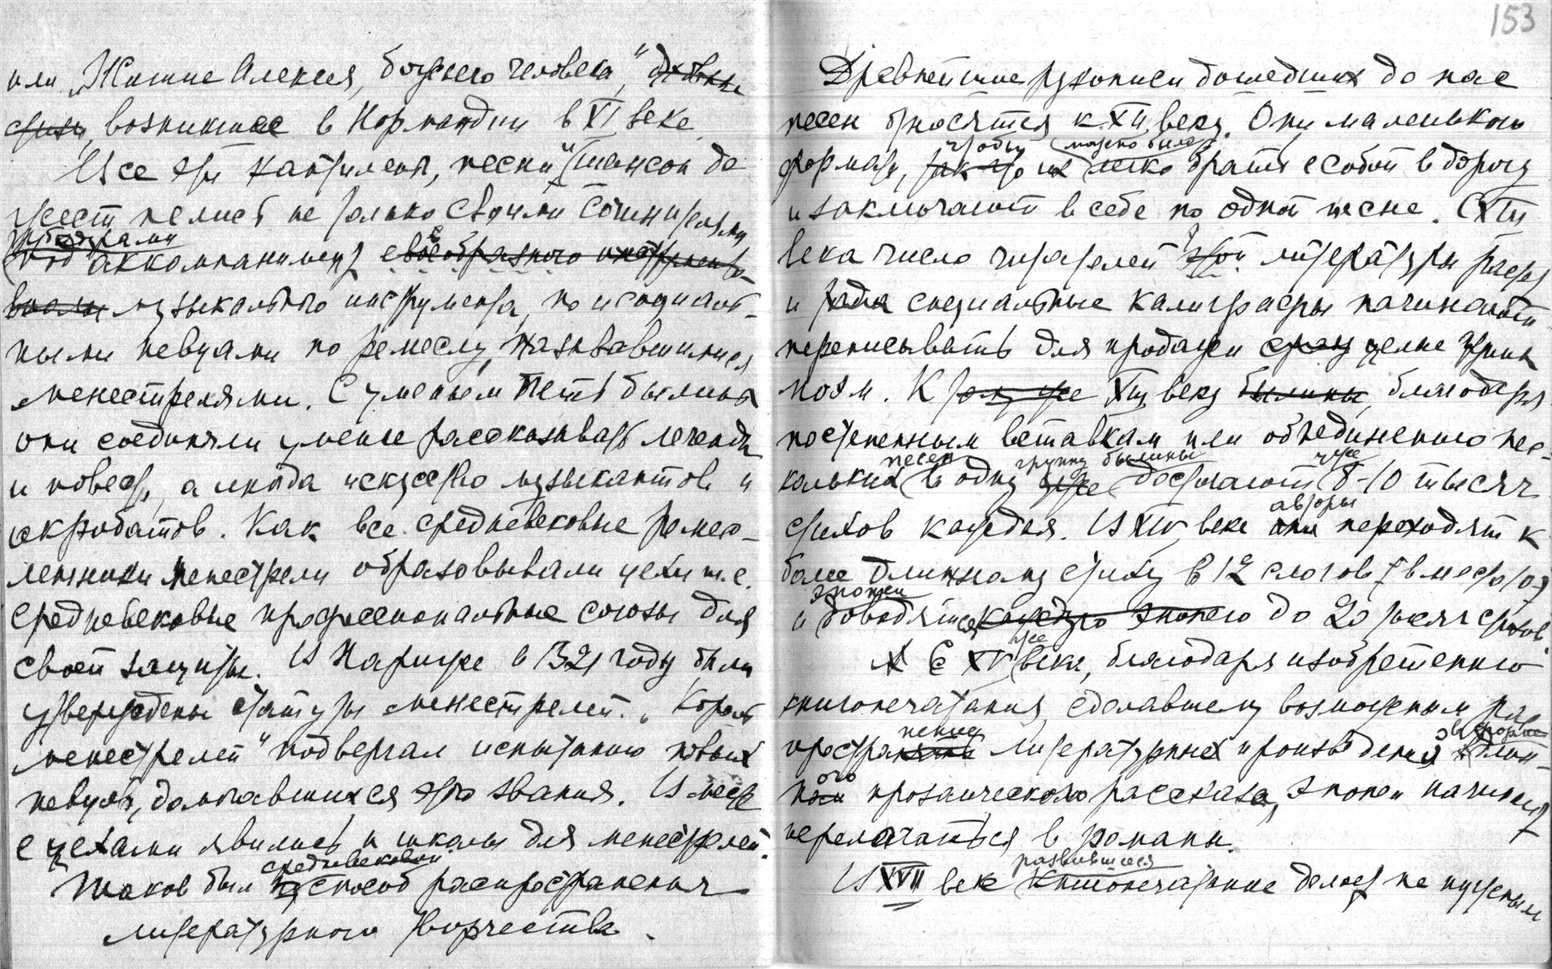 или „Житие Алексея, божьего человека,"
возникшее в Нормандии в XI веке.
Все эти кантилены, песни (шансон де
жест пелись не только своими сочинителями
под аккомпанимент своеобразного
музыкального инструмента, но и специаль-
ными певцами по ремеслу, называвшимися
менестрелями. С уменьем петь былины
они соединяли уменье рассказывать легенды
и повести, а иногда искусство музыкантов и
акробатов. Как все средневековые ремес-
ленники менестрели образовывали цехи т.е.
средневековые профессиональные союзы для
своей защиты. В Париже в 1321 году были
утверждены статуты менестрелей. „Король
менестрелей" подвергал испытанию новых
певцов, домогавшихся этого звания. Вместе
с цехами явились и школы для менестрелей.
средневековой
Таков был способ распространения
литературного творчества.
153
Древнейшие рукописи дошедших до нас
песен относятся к XII веку. Они маленького
чтобы можно было
формата, так что их легко брать с собой в дорогу
и заключают в себе по одной песне. С XIII
века число читателей этой литературы растет
и специальные калиграфы начинают
переписывать для продажи целые циклы
поэм. К XIII веку былины благодаря
постепенным вставкам или объединению нес-
песен группу былины уже
кольких в одну достигают 8-10 тысяч
авторы
стихов каждая. В XIV веке они переходят к
более длинному стиху в 12 слогов
эпопеи
и доводят каждую эпопею до 20 тысяч стихов.
уже
С XV века, благодаря изобретению
книгопечатания, сделавшему возможным рас-
нение
простра литературных произведений
ого
прозаического рассказа, эпопеи начинают
переделаться в романы.
развившееся
В XVII век книгопечатание делает не нужным